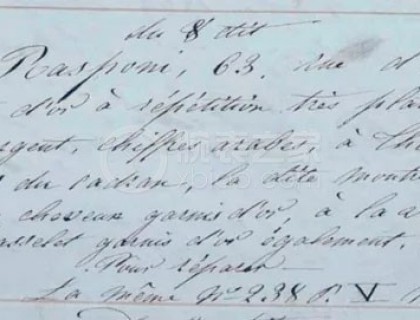 du 8 dit
Rasponi, 63. rue d
d'or à répétition très pla
rgent, chiffres arabes, à th
du cadran, la dite montr
cheveux garnis d'or, à la
asselet garnis d'or également.
Pour réparer
La même N° 238 P. V